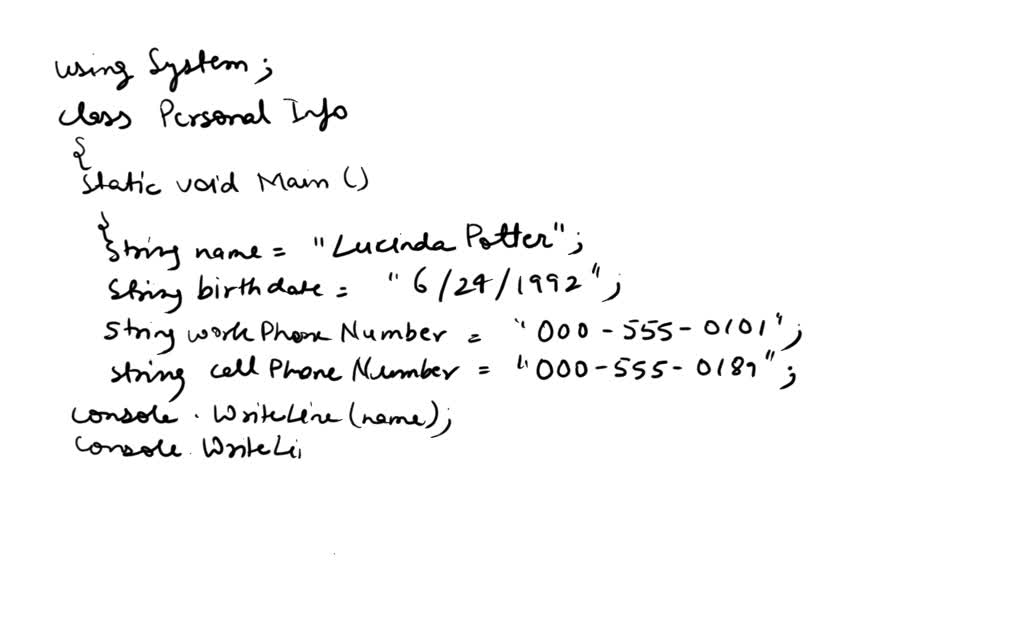 using System;
class Personal Info
{
static void Main ()
{
String name = "Lucinda Potter";
String birthdate = "6/24/1992";
String workPhone Number = "000-555-0101";
string cell Phone Number = "000-555-0189";
console . WriteLine (name);
console . WriteLi